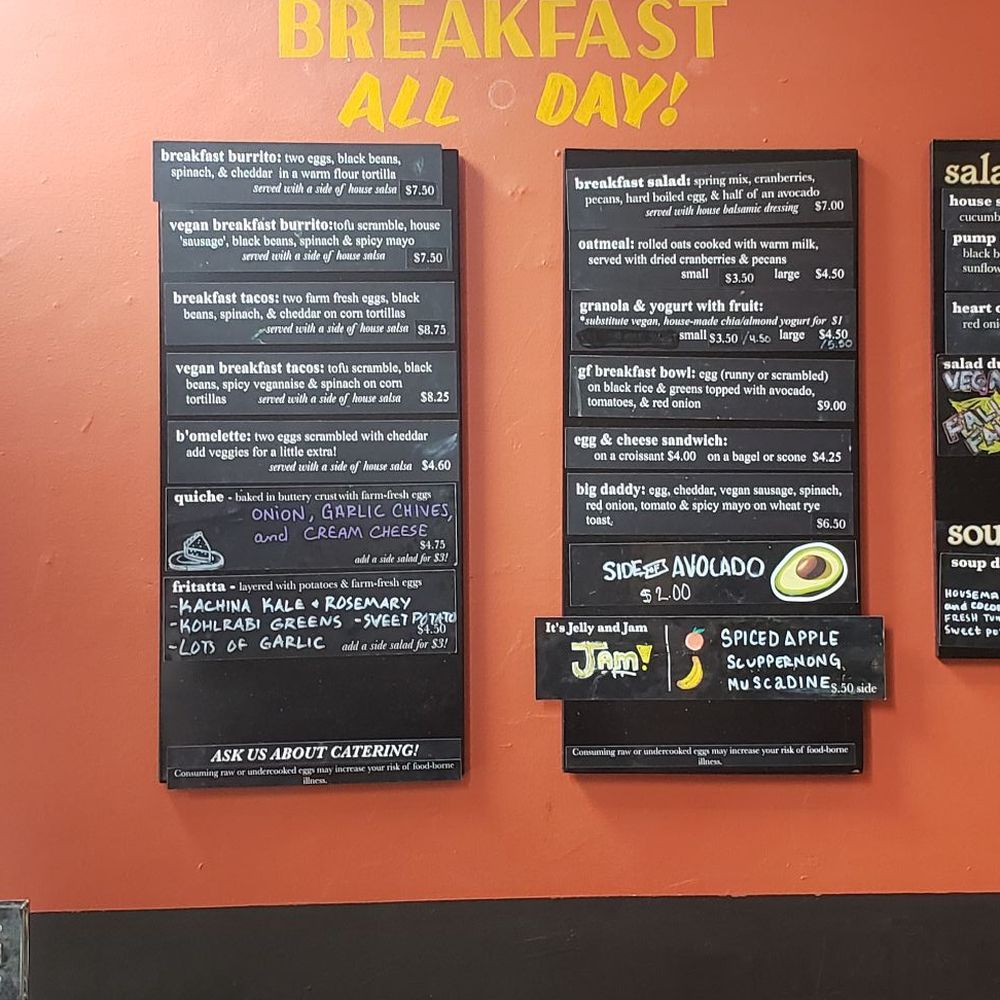 BREAKFAST
ALL DAY!
breakfast burrito: two eggs, black beans,
spinach, & cheddar in a warm flour tortilla
served with a side of house salsa $7.50
vegan breakfast burrito:tofu scramble, house
'sausage', black beans, spinach & spicy mayo
served with a side of house salsa $7.50
breakfast tacos: two farm fresh eggs, black
beans, spinach, & cheddar on corn tortillas
served with a side of house salsa $8.75
vegan breakfast tacos: tofu scramble, black
beans, spicy veganaise & spinach on corn
tortillas served with a side of house salsa $8.25
b'omelette: two eggs scrambled with cheddar
add veggies for a little extra!
served with a side of house salsa $4.60
quiche - baked in buttery crust with farm-fresh eggs
ONION, GARLIC CHIVES,
and CREAM CHEESE
$4.75
add a side salad for $3!
fritatta - layered with potatoes & farm-fresh eggs
-KACHINA KALE & ROSEMARY
-KOHLRABI GREENS -SWEET POTATO
$4.50
-LOTS OF GARLIC add a side salad for $3!
ASK US ABOUT CATERING!
Consuming raw or undercooked eggs may increase your risk of food-borne
illness.
breakfast salad: spring mix, cranberries,
pecans, hard boiled egg, & half of an avocado
served with house balsamic dressing $7.00
oatmeal: rolled oats cooked with warm milk,
served with dried cranberries & pecans
small $3.50 large $4.50
granola & yogurt with fruit:
*substitute vegan, house-made chia/almond yogurt for $1
small $3.50 /4.50 large $4.50
/5.50
gf breakfast bowl: egg (runny or scrambled)
on black rice & greens topped with avocado,
tomatoes, & red onion
$9.00
egg & cheese sandwich:
on a croissant $4.00 on a bagel or scone $4.25
big daddy: egg, cheddar, vegan sausage, spinach,
red onion, tomato & spicy mayo on wheat rye
toast,
$6.50
SIDE OF AVOCADO
$2.00
It's Jelly and Jam
Jam!
SPICED APPLE
SCUPPERNONG
MUSCADINE $.50 side
Consuming raw or undercooked eggs may increase your risk of food-borne
illness.
sala
house s
cucumb
pump
black b
sunflow
heart o
red oni
salad du
VEGA
FALL
sou
soup d
HOUSEMA
and COCO
FRESH TUR
SWEET PO